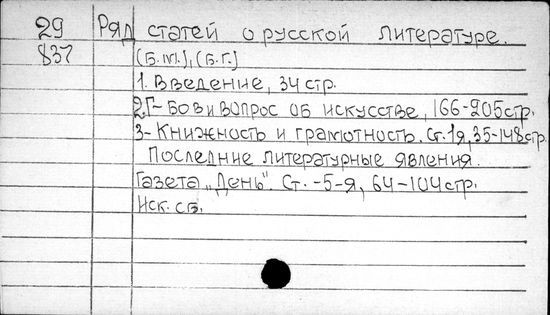 29 Ряд статей о русской литературе.
837 (Б.м.), (Б.г.)
1. Введение, 34 стр.
2. Г-Бов и вопрос об искусстве, 166-205 стр.
3- Книжность и грамотность. Ст. 1я, 35-148 стр.
Последние литературные явления.
Газета „День". Ст. -5-я, 64-104 стр.
Иск. св.